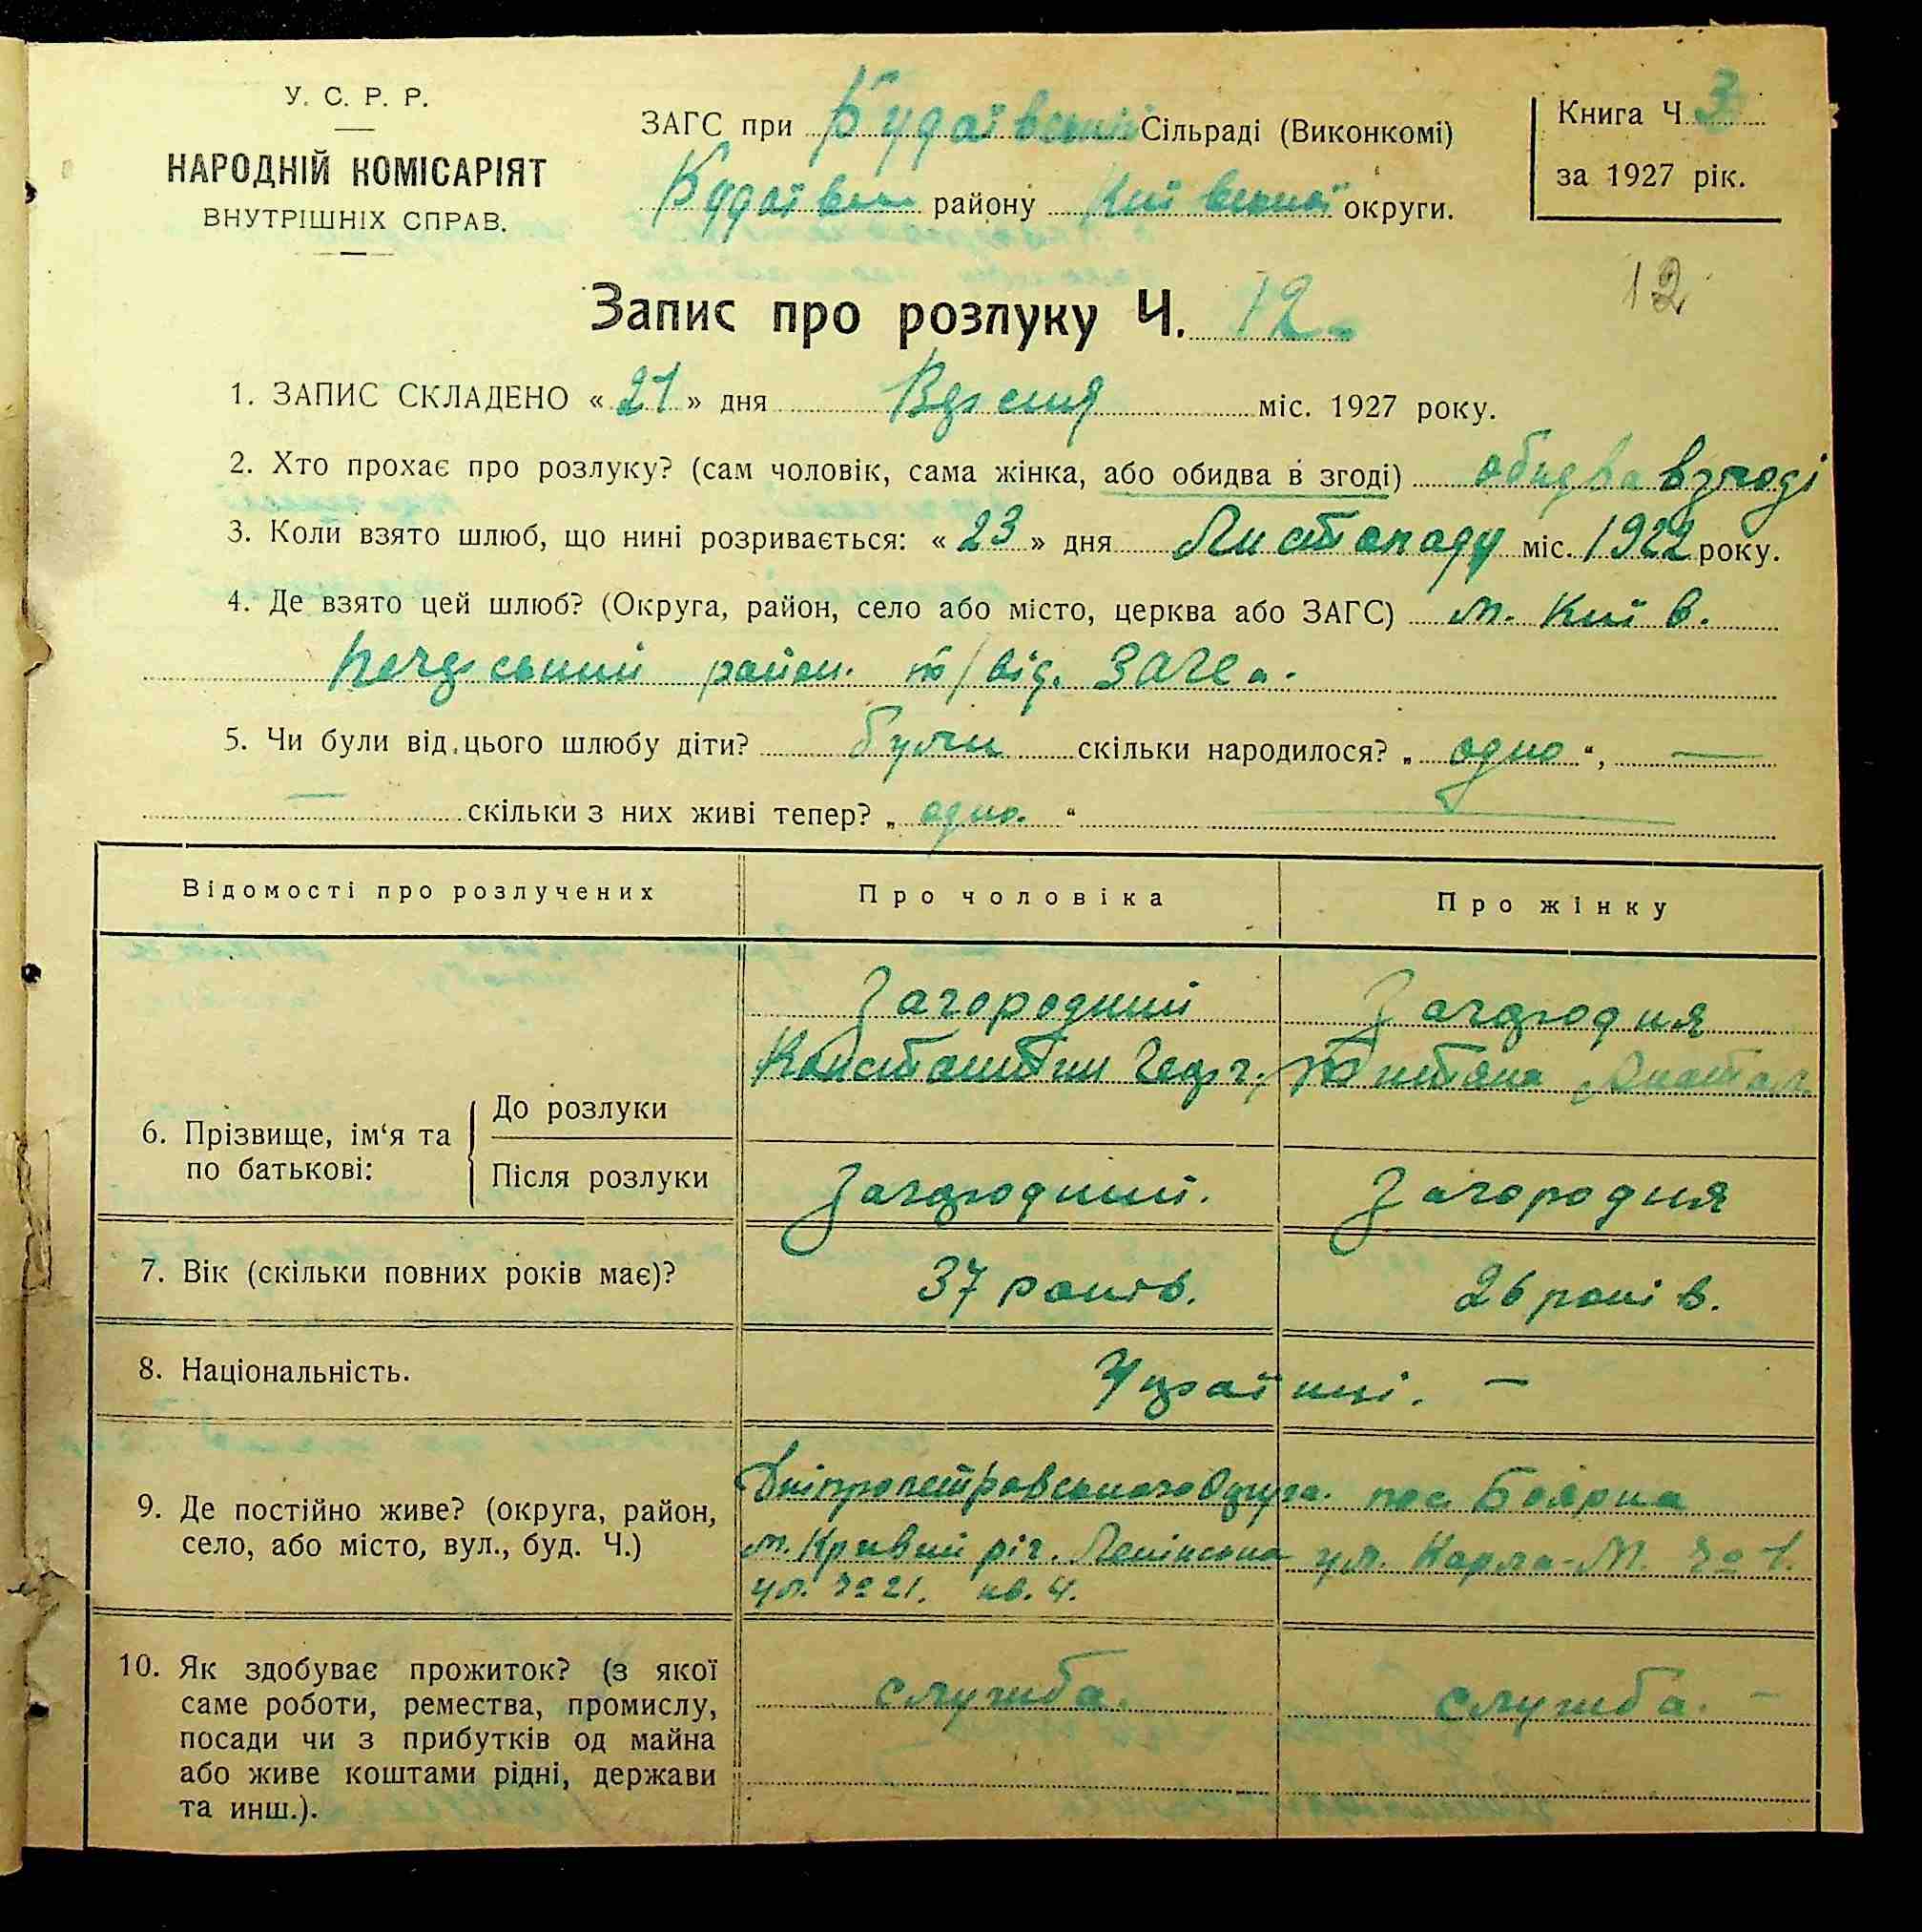 У. С. Р. Р.
НАРОДНІЙ КОМІСАРІЯТ
ВНУТРІШНІХ СПРАВ.
ЗАГС при Будаївській Сільраді (Виконкомі)
Будаївськ району Київської округи.
Книга Ч 3
за 1927 рік.
12
Запис про розлуку Ч. 12
1. ЗАПИС СКЛАДЕНО « 21 » дня Вересня міс. 1927 року.
2. Хто прохає про розлуку? (сам чоловік, сама жінка, або обидва в згоді) обидва в згоді
3. Коли взято шлюб, що нині розривається: « 23 » дня Листопаду міс. 1922 року.
4. Де взято цей шлюб? (Округа, район, село або місто, церква або ЗАГС) м. Київ.
Печерський район. п/від. ЗАГСа.
5. Чи були від цього шлюбу діти? були скільки народилося? „ одно “, —
— скільки з них живі тепер? „ одно. “
Відомості про розлучених Про чоловіка Про жінку
Загородний Загородня
Константин Георг. Титяна Анатол
6. Прізвище, ім‘я та по батькові:
До розлуки
Після розлуки Загородний. Загородня
7. Вік (скільки повних років має)? 37 років. 26 років.
8. Національність. Українці. —
9. Де постійно живе? (округа, район, село, або місто, вул., буд. Ч.)
Дніпропетровського Округа. пос. Боярка
м. Кривий ріг. Ленінська ул. Карла-М. № 1.
ул. № 21. кв. 4.
10. Як здобуває прожиток? (з якої
саме роботи, ремества, промислу,
посади чи з прибутків од майна
або живе коштами рідні, держави
та инш.).
служба. служба. —